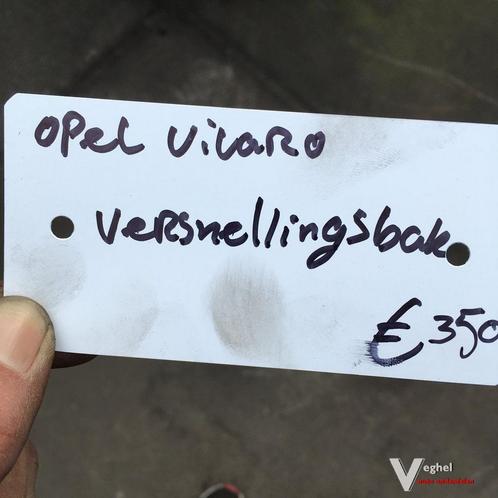 Opel Vivaro
Versnellingsbak
€ 350
Veghel